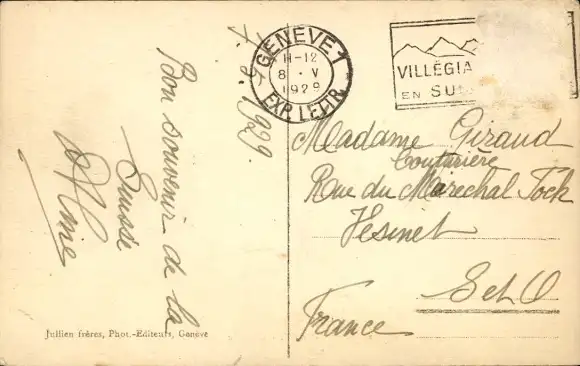 GENEVE 1
11-12
8 · V
1929
EXP. LETTR.
VILLÉGIA
EN SU
1929
Bon souvenir de la
Suisse
Madame Giraud
Couturière
Rue du Marechal Fock
Vesinet
S et O
France
Jullien frères, Phot.-Editeurs, Genève